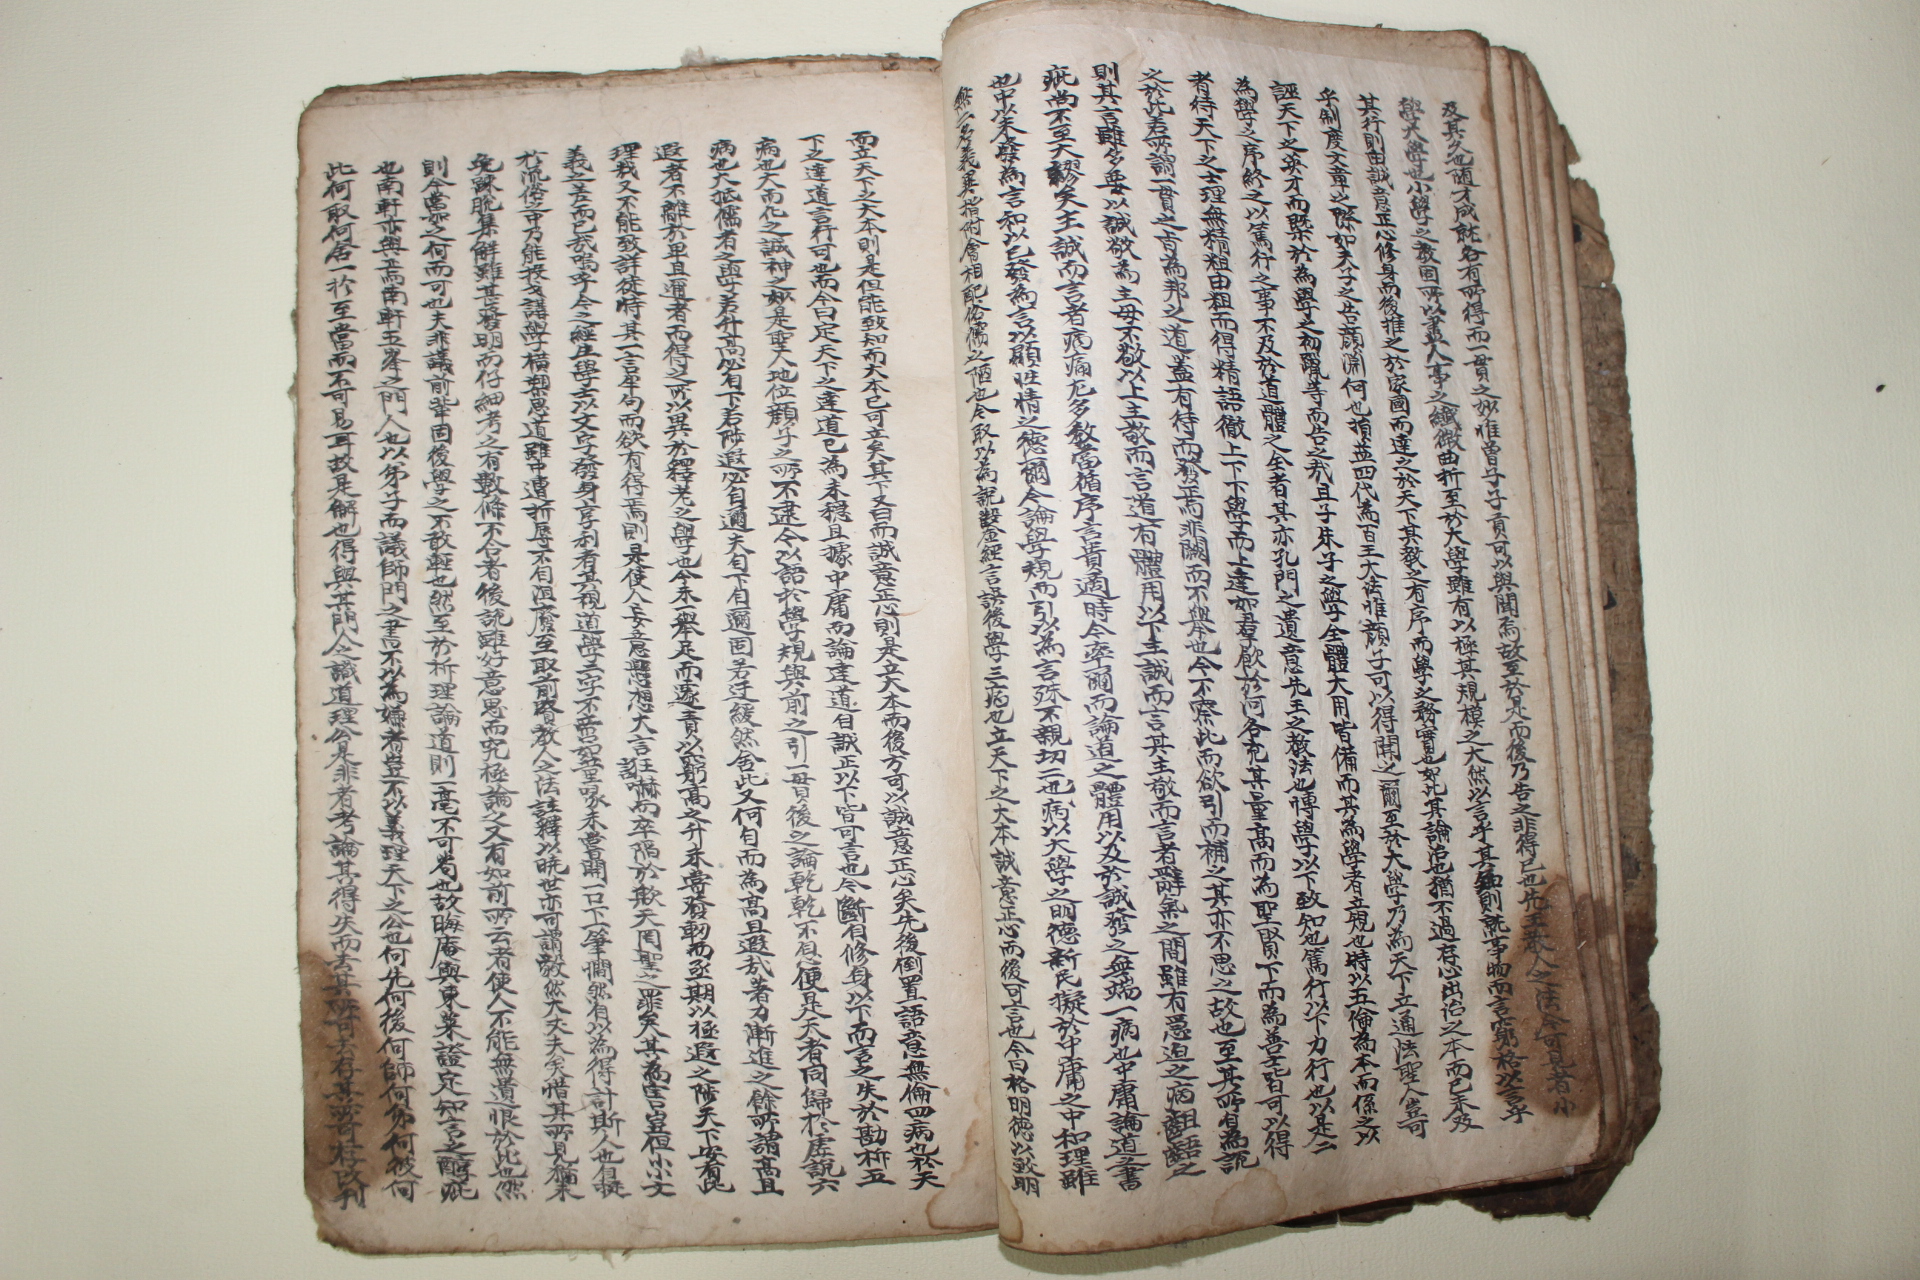 及其久也隨才成就各有所得而一貫之妙惟曾子子貢可以與聞焉故至於是而後乃告之非得已也先王教人之法今可見者小
學大學也小學之教固所以盡人事之纖微曲折至於大學雖有以極其規模之大然以言乎其知則就事物而言窮格以言乎
其行則由誠意正心修身而後推之於家國而達之於天下其教之有序而學之務實也如此其論治也猶不過存心出治之本而已未及
乎制度文章之際如夫子之告顏淵何也損益四代為百王大法惟顏子可以得聞之爾至於大學乃為天下立通法聖人豈可
誣天下之英才而槩於為學之初躐等而告之哉且子朱子之學全體大用皆備而其為學者立規也時以五倫為本而係之以
為學之序終之以篤行之事不及於道體之全者其亦孔門之遺意先王之教法也博學以下致知也篤行以下力行也以是二
者待天下之士理無精粗由粗而得精語徹上下下學而上達如羣飲於河各充其量高而為聖賢下而為善士皆可以得
之於此若所謂一貫之旨為邦之道蓋有待而發焉非闕而不與也今不察此而欲引而補之其亦不思之故也至其所自為說
則其言雖多要以誠敬為主毋不敬以上主敬而言道有體用以下主誠而言其主敬而言者辭氣之間雖有急迫之病齟語之
疵尚不至大繆矣主誠而言者病痛尤多教當循序言貴適時今率爾而論道之體用以及於誠發之無端一病也中庸論道之書
也中以未發為言和以已發為言以顯性情之德爾今論學規而引以為言殊不親切二也病以大學之明德新民擬於中庸之中和理雖
無二名義異指附會相配俗儒之陋也今取以為說鑿金經言誤後學三病也立天下之大本誠意正心而後可言也今曰格明德以致明
而立天下之大本則是但能致知而大本已可立矣其下又曰而誠意正心則是立大本而後方可以誠意正心矣先後倒置語意無倫四病也於天
下之達道言行可也而今曰定天下之達道已為未穩且據中庸而論達道自誠正以下皆可言也今斷自修身以下而言之失於勘析五
病也大而化之誠神之妙是聖人地位顏子之所不逮今以語於學規與前之引一貫後之論乾乾不息便是天者同歸於虛說六
病也大抵儒者之學若升高必自下若陟遐必自邇夫自下自邇固若迂緩然舍此又何自而為高且遐哉著力漸進之餘所謂高且
遐者不離於卑且邇者而得之所以異於釋老之學也今未一舉足而遽責以窮高之升未嘗發軔而亟期以極遐之陟天下安有此
理哉又不能致詳徒恃其一言半句而欲有得焉則是使人妄意懸想大言狂嚇而卒陷於欺天罔聖之罪矣其為害豈但小小文
義之差而已哉嗚乎今之經生學士以文字發身享利者其視道學二字不啻如豆啄未嘗開一口下一筆憪然自以為得計斯人也自拔
於流俗之中乃能投戈講學橫槊思道雖中遭折辱不自沮廢至取前賢教人之法註釋以曉世亦可謂毅然大丈夫矣惜其所見猶未
免踈脫集解雖甚發明而仔細考之有數條不合者後說雖好意思而究極論之又有如前所云者使人不能無遺恨於此也然
則今當如之何而可也夫非議前輩固後學之不敢輕也然至於析理論道則一毫不可苟也故晦庵與東萊證定知言之醇疵
也南軒亦與焉南軒五峯之門人也以弟子而議師門之書不以為嫌者豈不以義理天下之公也何先何後何師何弟何彼何
此何取何舍一於至當而不可易耳故是解也得與其門人之識道理公是非者考論其得失而去其所可去存其所可存改刊